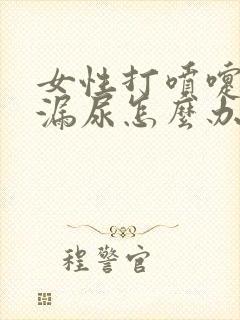 女性打喷嚏
漏尿怎麼办
程警官